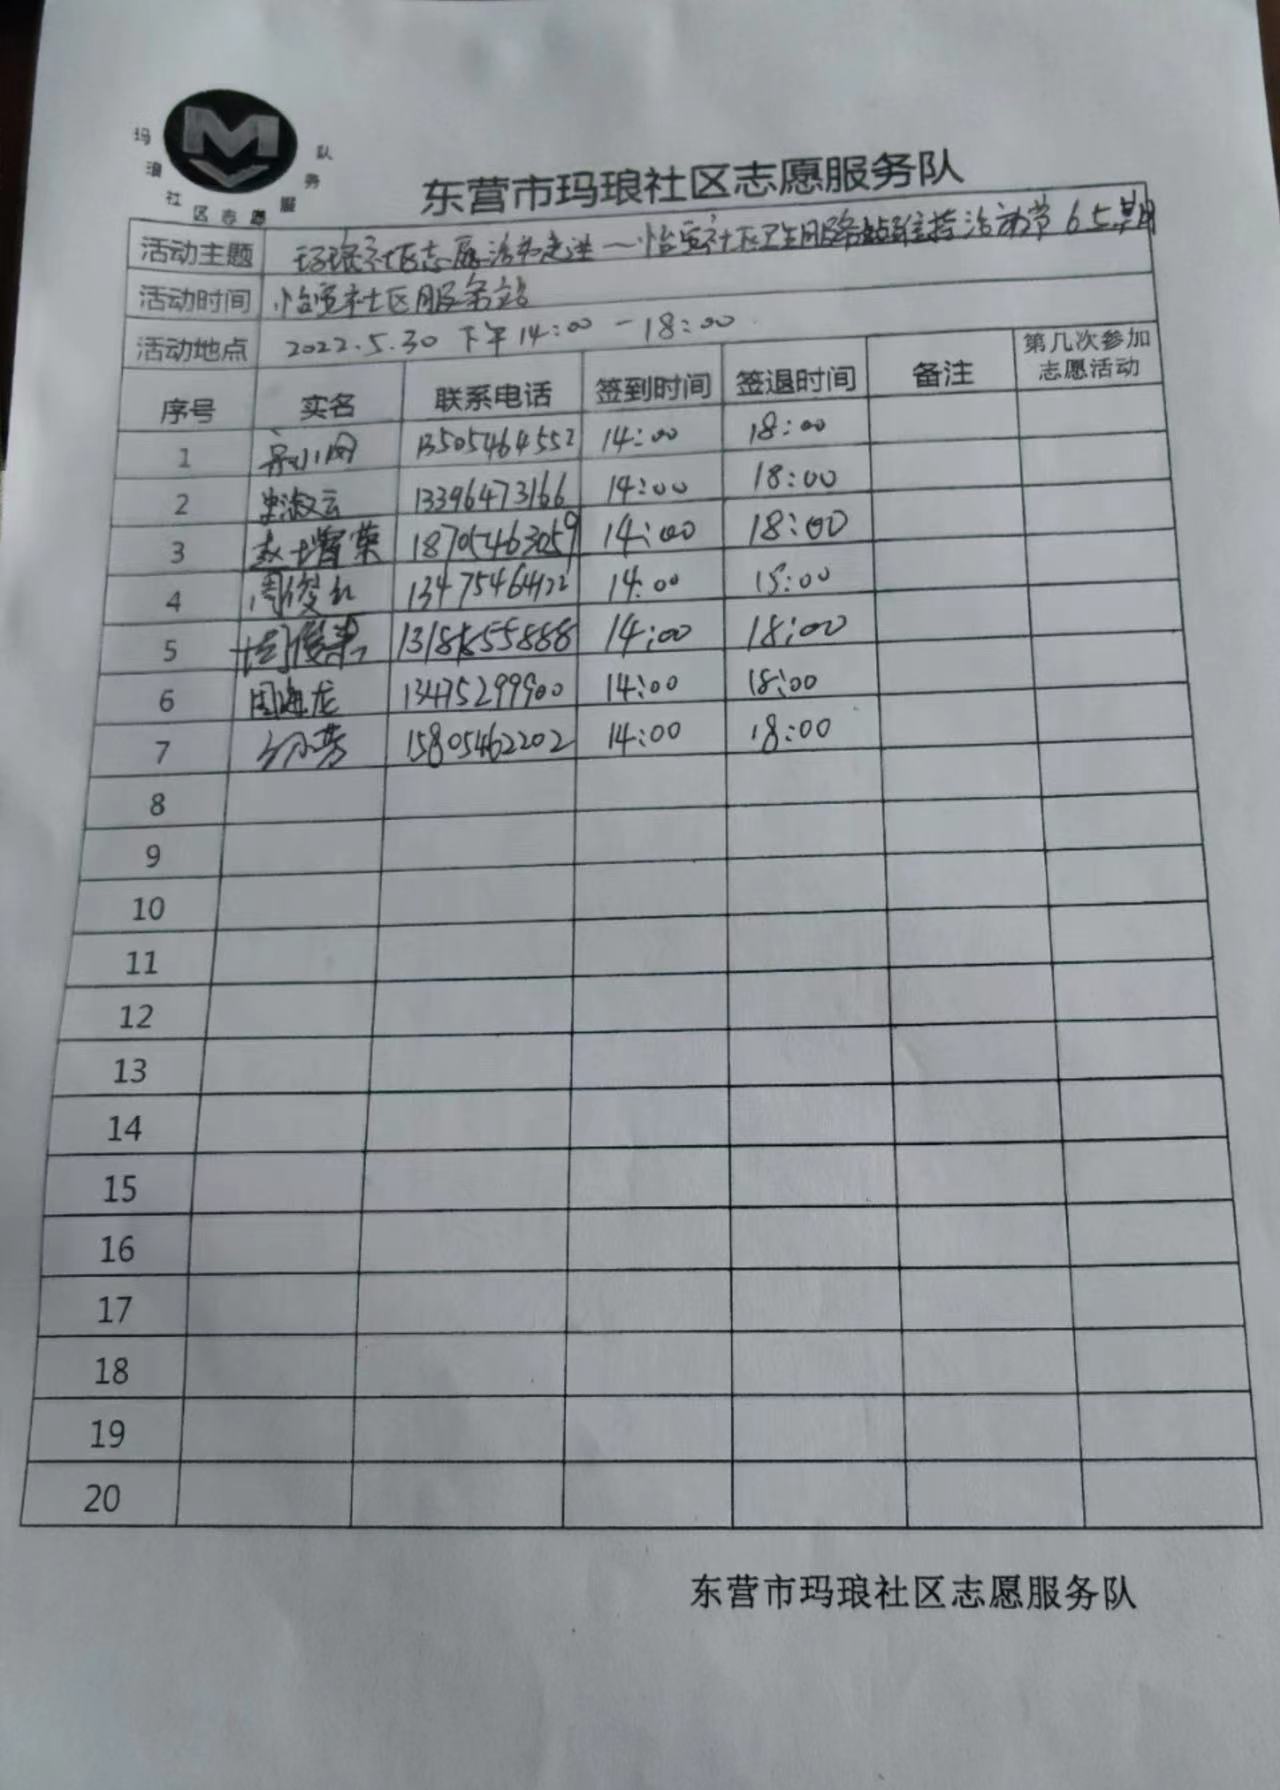 M
玛琅社区志愿服务队
东营市玛琅社区志愿服务队
活动主题 玛琅社区志愿活动走进一怡宽社区卫生服务站维持活动第65期
活动时间 怡宽社区服务站
活动地点 2022.5.30 下午14:00-18:00
序号 实名 联系电话 签到时间 签退时间 备注 第几次参加志愿活动
1 13505464552 14:00 18:00
2 史淑云 13396473166 14:00 18:00
3 赵增荣 18705463059 14:00 18:00
4 周俊红 13475464122 14:00 18:00
5 14:00 18:00
6 周海龙 13475299900 14:00 18:00
7 孙芳 15805462202 14:00 18:00
8
9
10
11
12
13
14
15
16
17
18
19
20
东营市玛琅社区志愿服务队